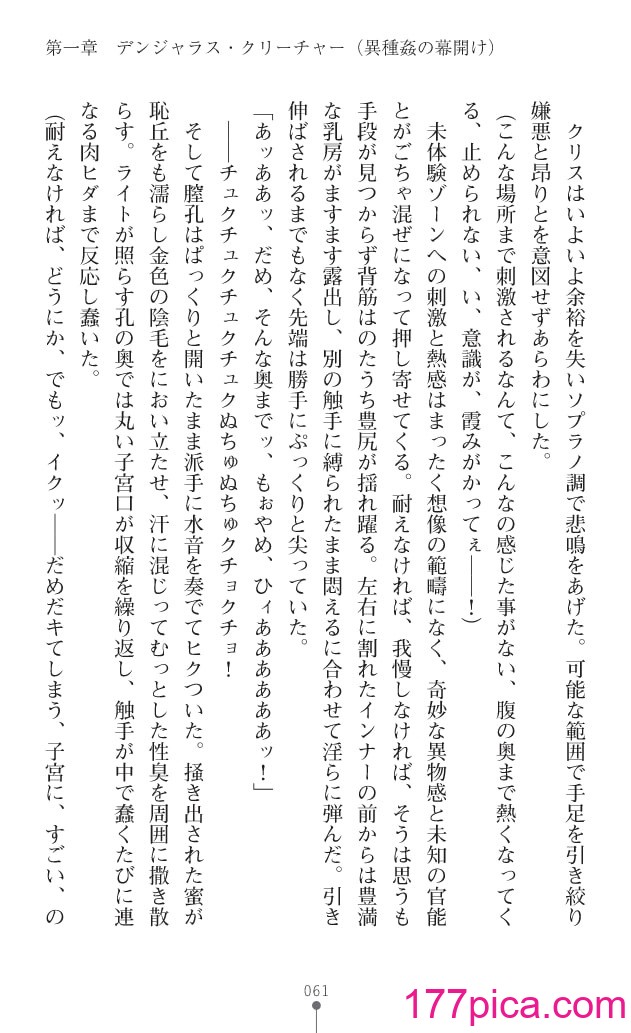 第一章　デンジャラス・クリーチャー（異種姦の幕開け）
クリスはいよいよ余裕を失いソプラノ調で悲鳴をあげた。可能な範囲で手足を引き絞り
嫌悪と昂りとを意図せずあらわにした。
（こんな場所まで刺激されるなんて、こんなの感じた事がない、腹の奥まで熱くなってく
る、止められない、い、意識が、霞みがかってぇ――！）
未体験ゾーンへの刺激と熱感はまったく想像の範疇になく、奇妙な異物感と未知の官能
とがごちゃ混ぜになって押し寄せてくる。耐えなければ、我慢しなければ、そうは思うも
手段が見つからず背筋はのたうち豊尻が揺れ躍る。左右に割れたインナーの前からは豊満
な乳房がますます露出し、別の触手に縛られたまま悶えるに合わせて淫らに弾んだ。引き
伸ばされるまでもなく先端は勝手にぷっくりと尖っていた。
「あッああッ、だめ、そんな奥までッ、もぉやめ、ひィああああああッ！」
――チュクチュクチュクチュクぬちゅぬちゅクチョクチョ！
そして膣孔はぱっくりと開いたまま派手に水音を奏でてヒクついた。掻き出された蜜が
恥丘をも濡らし金色の陰毛をにおい立たせ、汗に混じってむっとした性臭を周囲に撒き散
らす。ライトが照らす孔の奥では丸い子宮口が収縮を繰り返し、触手が中で蠢くたびに連
なる肉ヒダまで反応し蠢いた。
（耐えなければ、どうにか、でもッ、イクッ――だめだキてしまう、子宮に、すごい、の
061
177pica.com